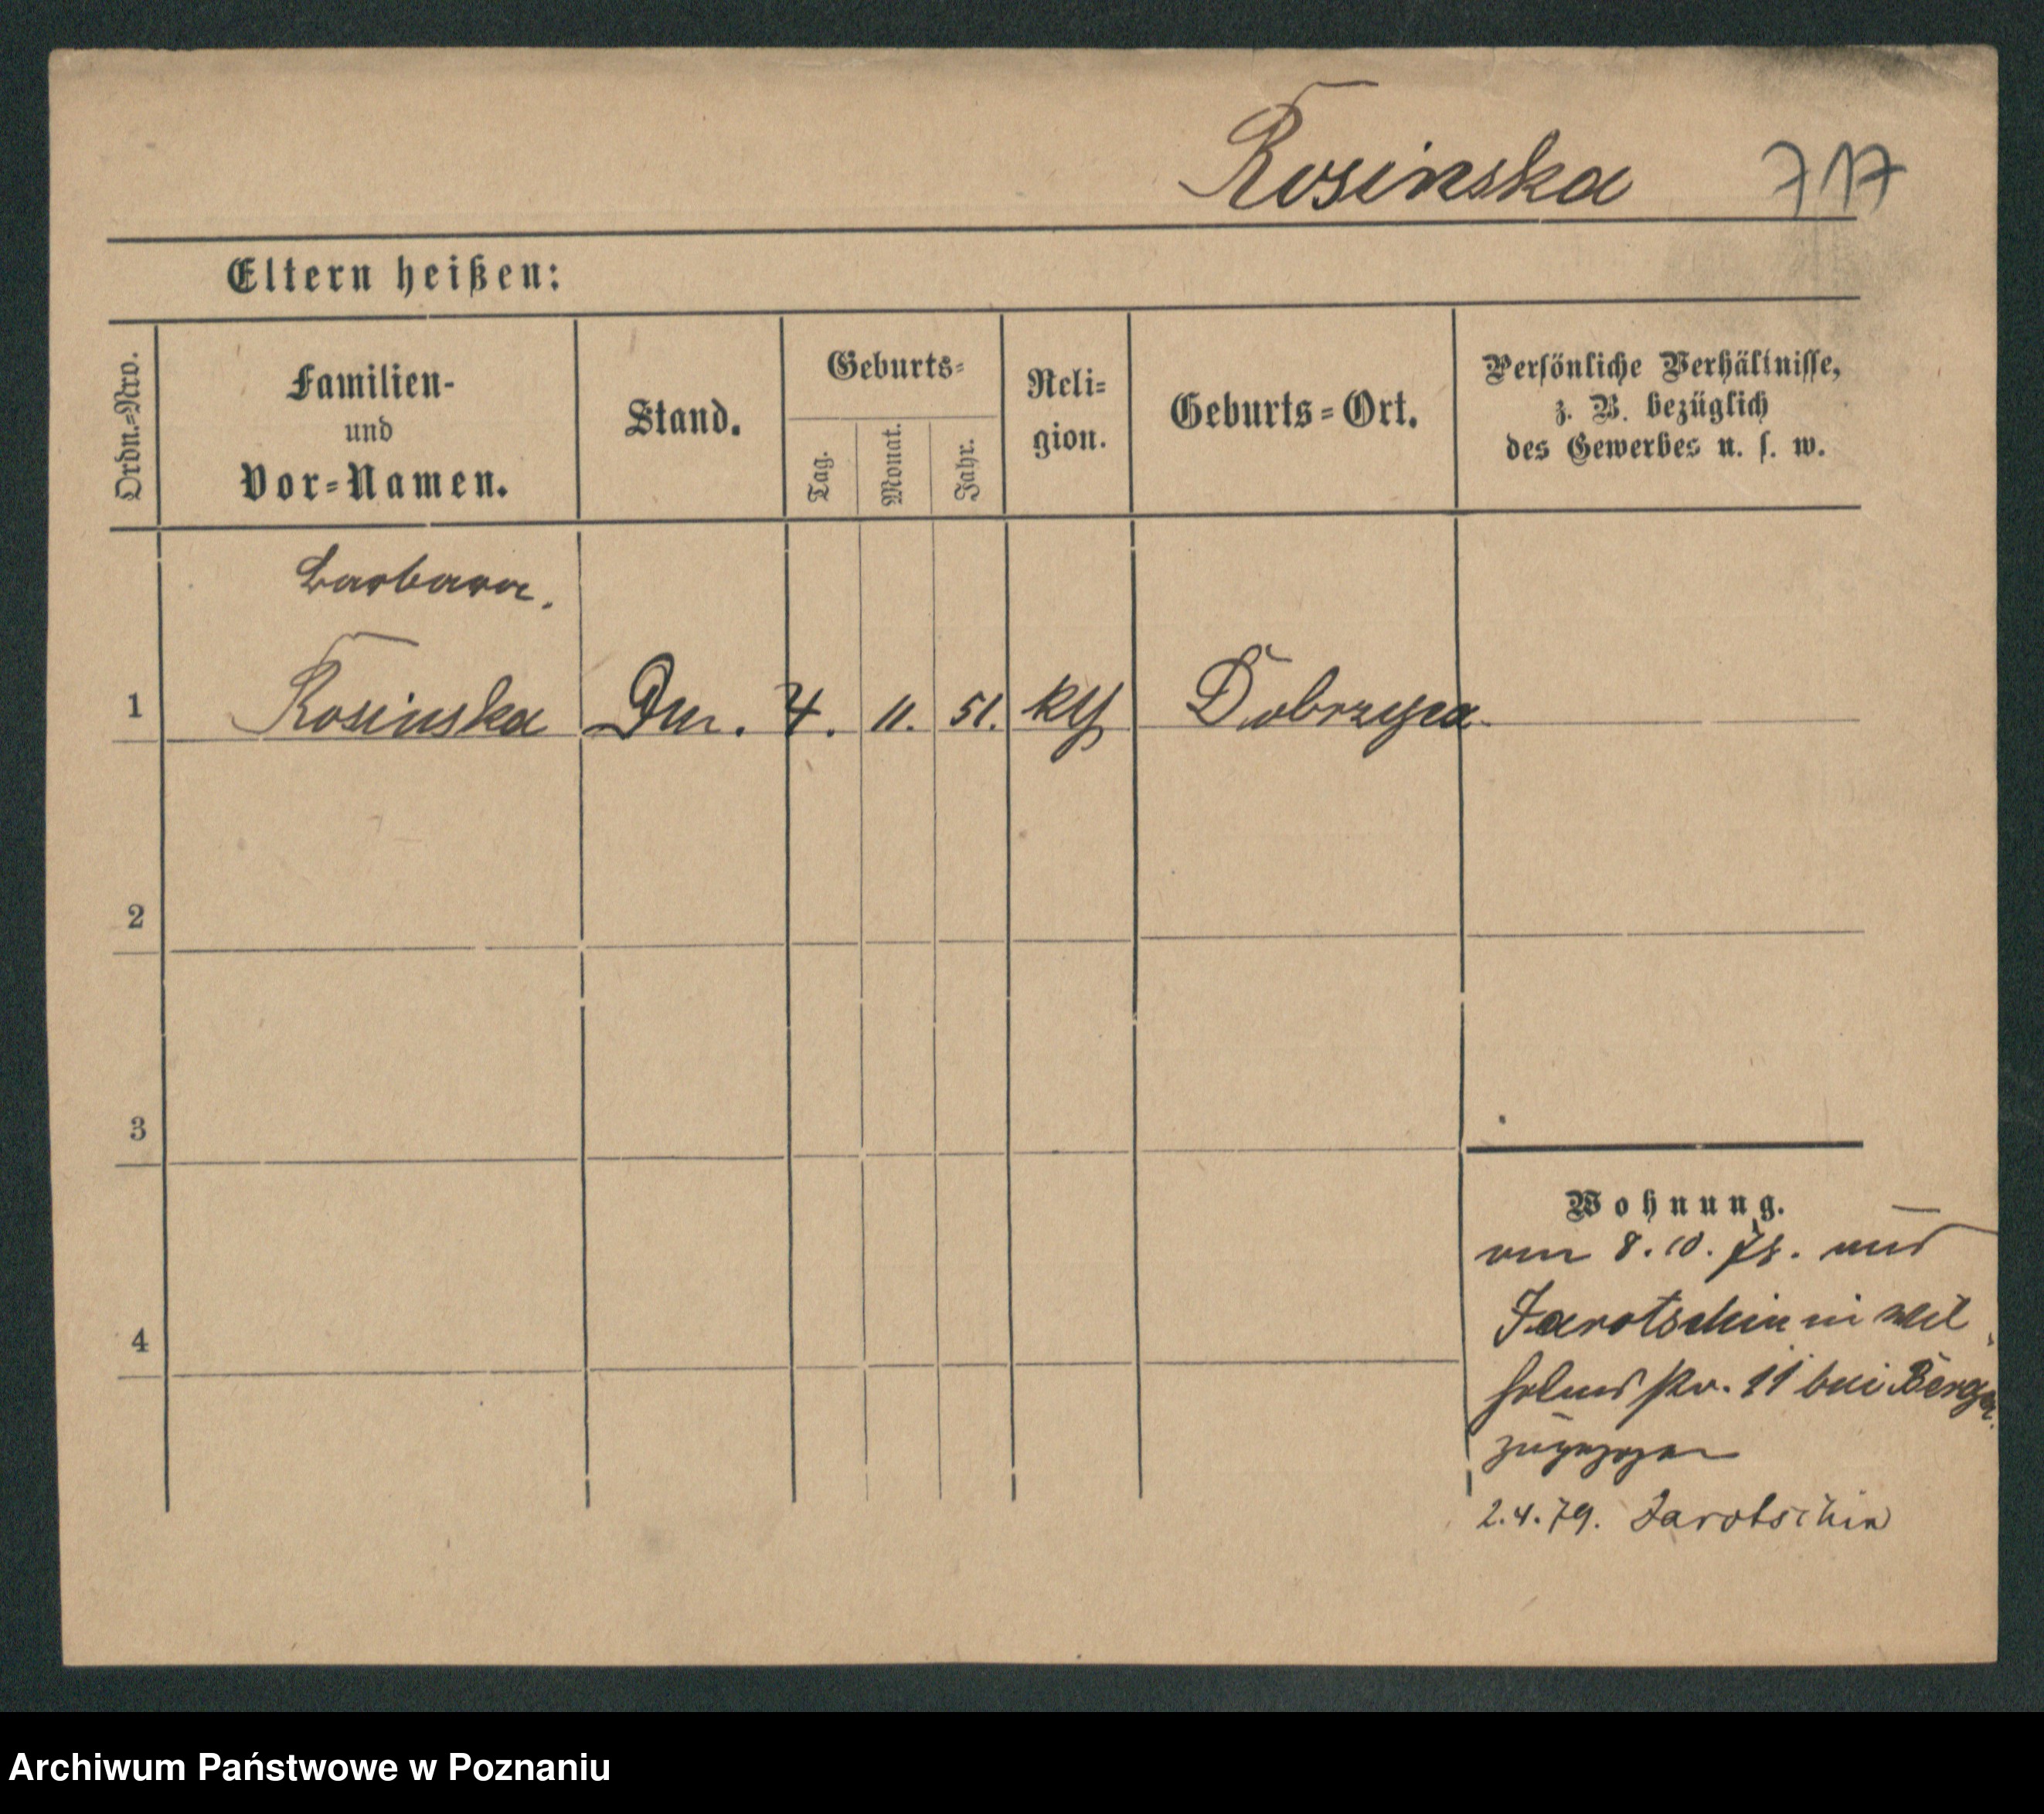 Rosinska 717
Eltern heißen:
Ordn.=Nro.
Familien-
und
Vor=Namen.
Stand.
Geburts=
Tag.
Monat.
Jahr.
Reli=
gion.
Geburts=Ort.
Persönliche Verhältnisse,
z. B. bezüglich
des Gewerbes u. s. w.
Barbara.
1 Rosinska 4. 11. 51. kth Dobrzyca
2
3
4
Wohnung.
am 8. 10. 78. aus
Jarotschin in Wil
11 bei Berger
zugezogen
2.4.79. Jarotschin
Archiwum Państwowe w Poznaniu